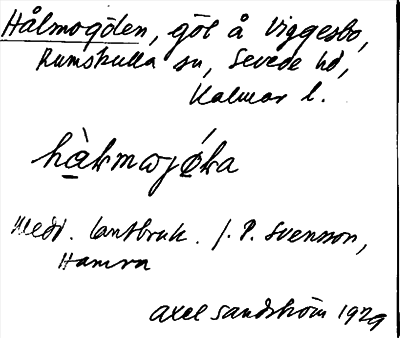 Hålmogölen, göl å Viggesbo,
Rumskulla sn, Sevede hd,
Kalmar l.
Medd. lantbruk. J. P. Svensson,
Hamra
Axel Sandström 1929